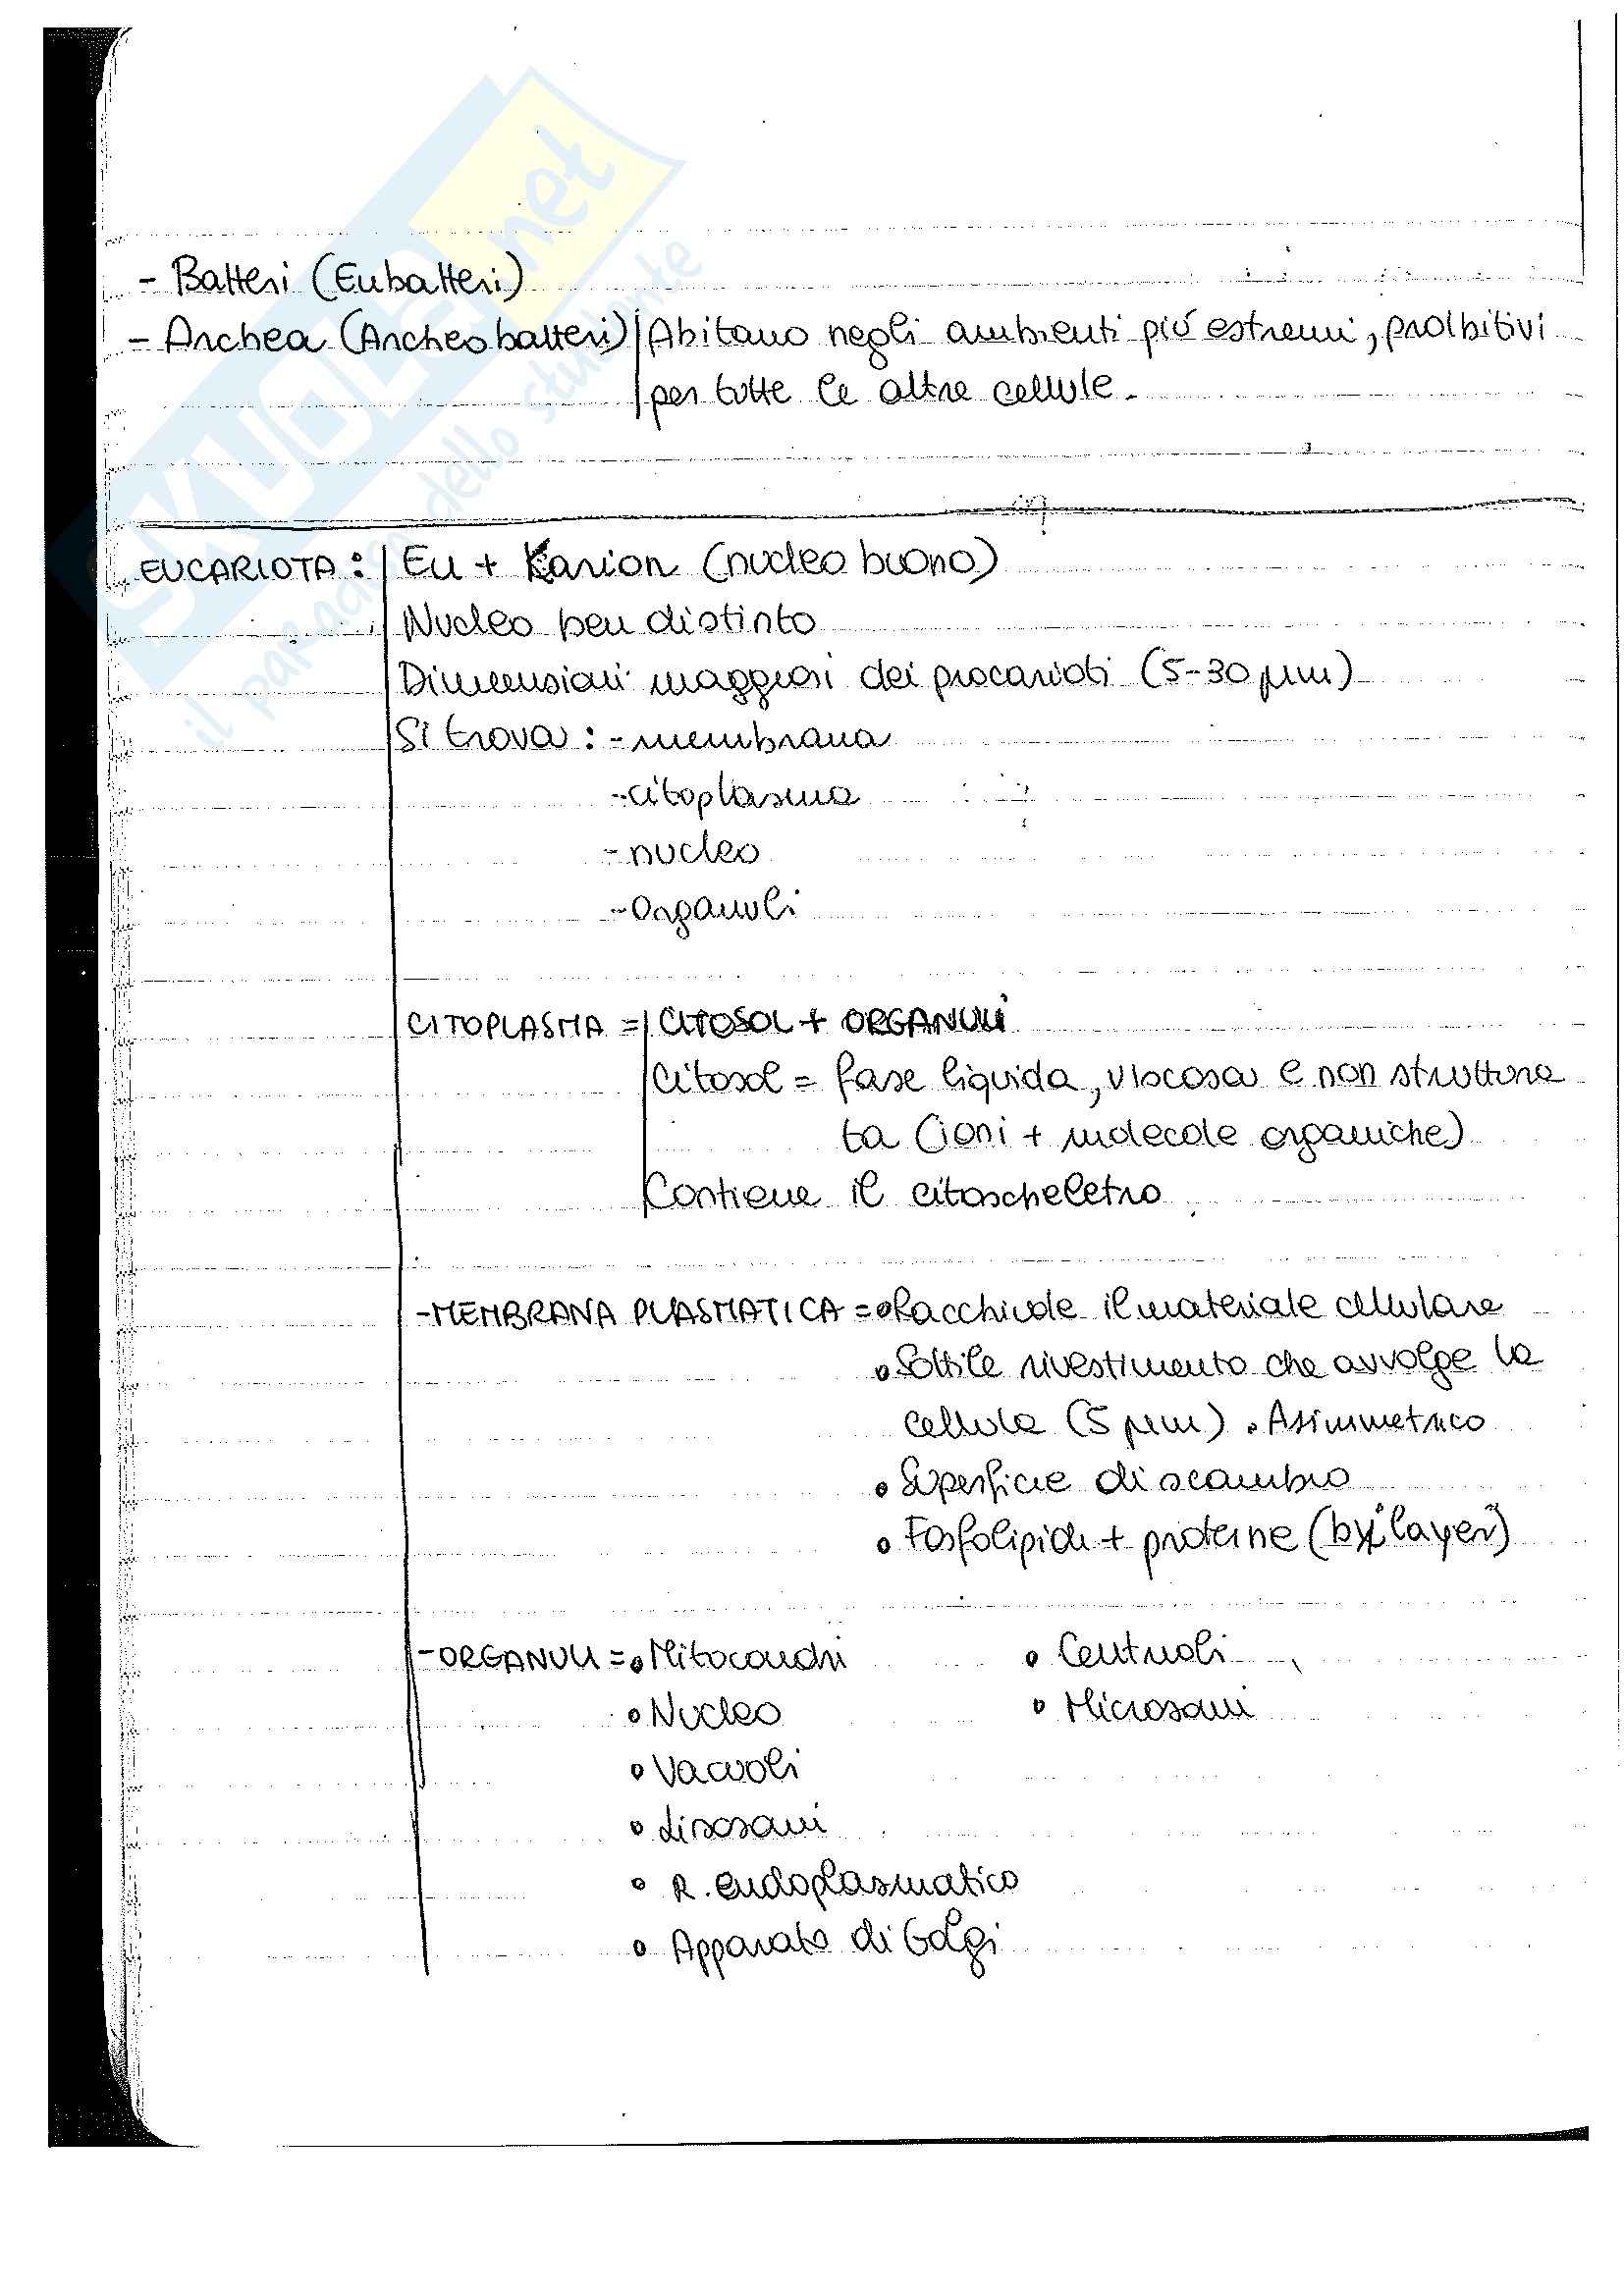 - Batteri (Eubatteri)
- Archea (Archeobatteri) Abitano negli ambienti più estremi, proibitivi
per tutte le altre cellule.
EUCARIOTA: Eu + Karion (nucleo buono)
Nucleo ben distinto
Dimensioni maggiori dei procarioti (5-30 μm)
Si trova: - membrana
- citoplasma
- nucleo
- Organuli
CITOPLASMA = CITOSOL + ORGANULI
Citosol = fase liquida, viscosa e non struttura
ta (ioni + molecole organiche)
Contiene il citoscheletro
- MEMBRANA PLASMATICA = • Racchiude il materiale cellulare
• Sottile rivestimento che avvolge la
cellula (5 μm) • Asimmetrico
• Superficie di scambio
• Fosfolipidi + proteine (bilayer)
- ORGANULI = • Mitocondri • Centrioli
• Nucleo • Microsomi
• Vacuoli
• Lisosomi
• R. endoplasmatico
• Apparato di Golgi
SKUOLA.net
il paradiso dello studente